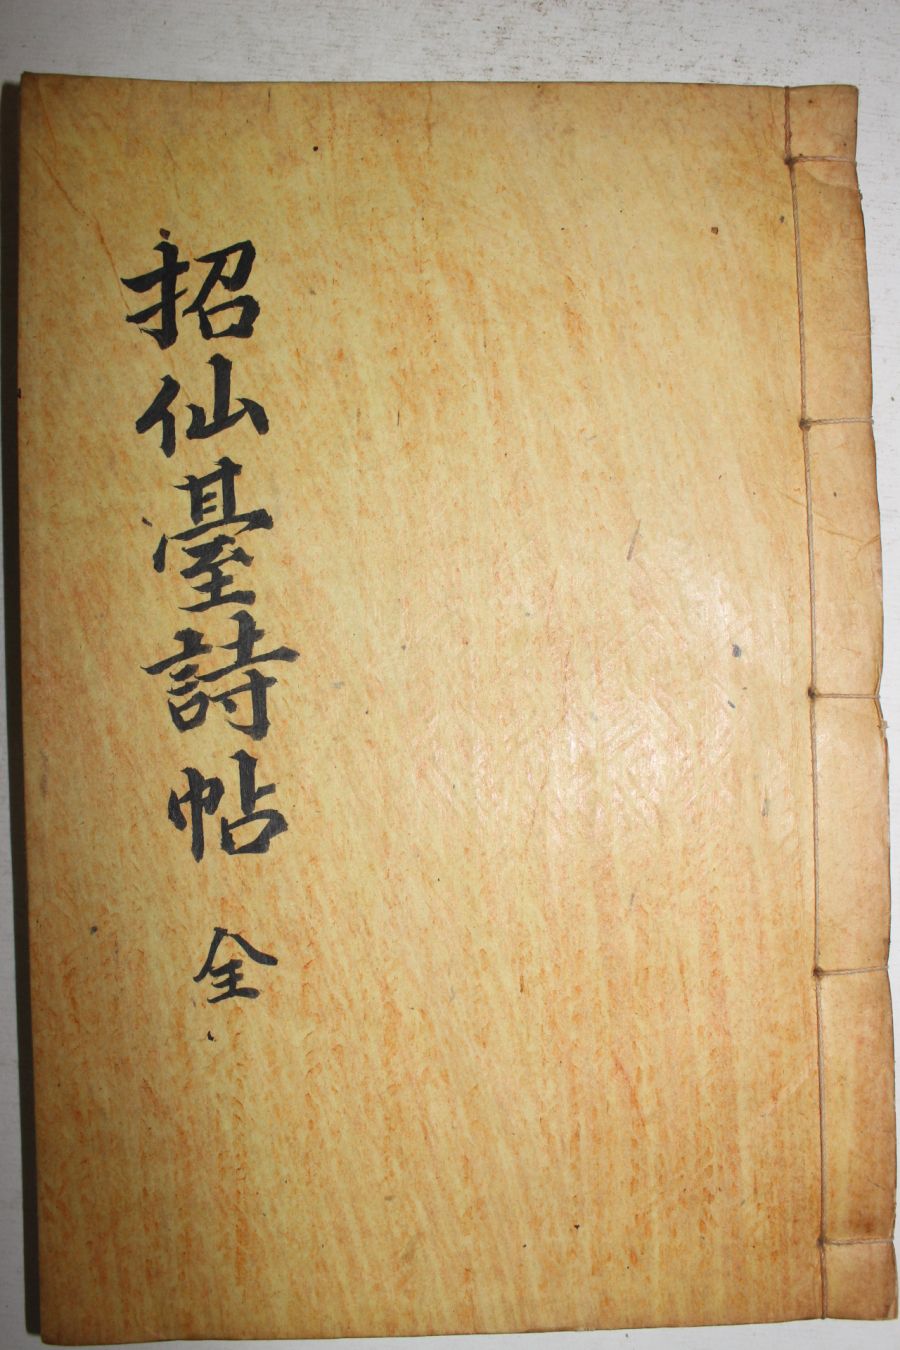 招仙臺詩帖 全